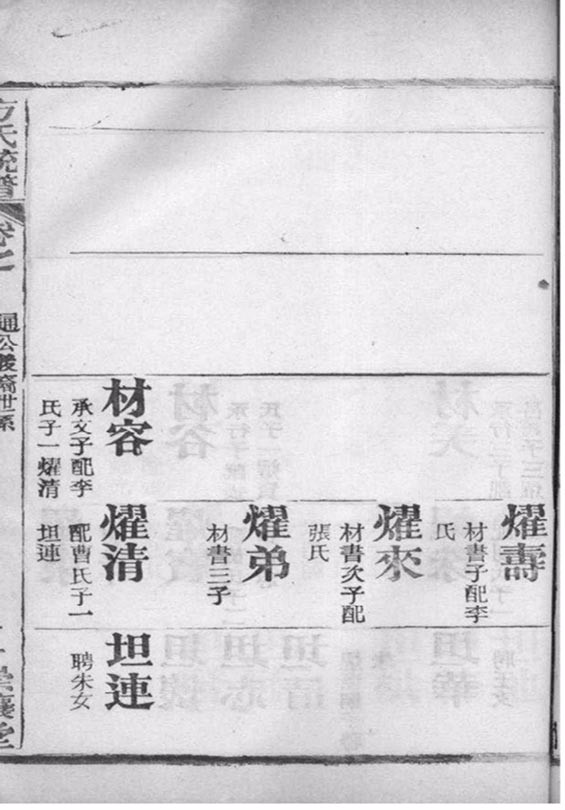 耀壽
材書子配李
氏
耀來
材書次子配
張氏
耀弟
材書三子
材容
承文子配李
氏子一耀清
耀清
配曹氏子一
坦連
坦連
聘朱女
方氏統譜
卷之
通公後裔世系